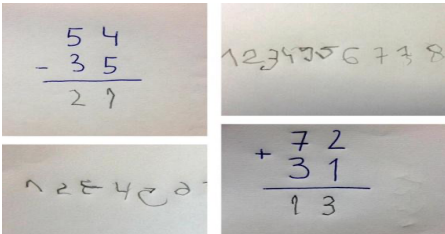 5 4
- 3 5
2 1
1 2 3 4 5 6 7 8
1 2 4
+ 7 2
3 1
1 3